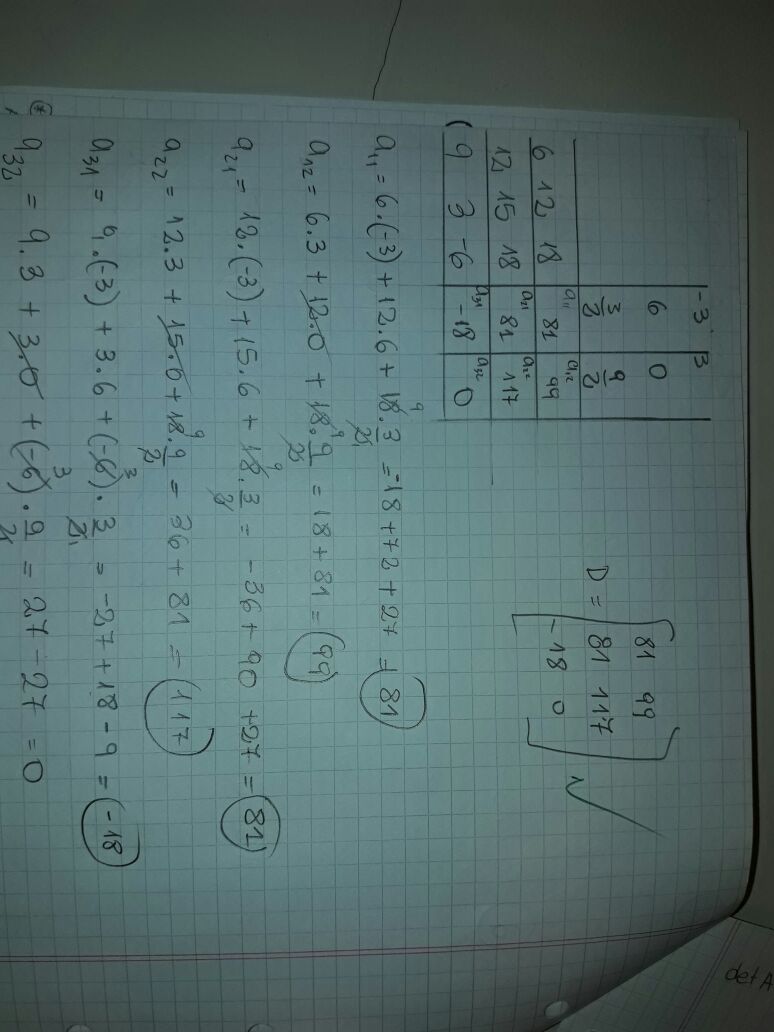 -3 3
6 0
3/2 9/2
6 12 18 a₁₁ 81 a₁₂ 99
12 15 18 a₂₁ 81 a₂₂ 117
9 3 -6 a₃₁ -18 a₃₂ 0
D = [81 99
81 117
-18 0]
a₁₁ = 6.(-3) + 12.6 + 18.3/2 = -18 + 72 + 27 = 81
a₁₂ = 6.3 + 12.0 + 18.9/2 = 18 + 81 = 99
a₂₁ = 12.(-3) + 15.6 + 18.3/2 = -36 + 90 + 27 = 81
a₂₂ = 12.3 + 15.0 + 18.9/2 = 36 + 81 = 117
a₃₁ = 9.(-3) + 3.6 + (-6).3/2 = -27 + 18 - 9 = -18
a₃₂ = 9.3 + 3.0 + (-6).9/2 = 27 - 27 = 0
det A